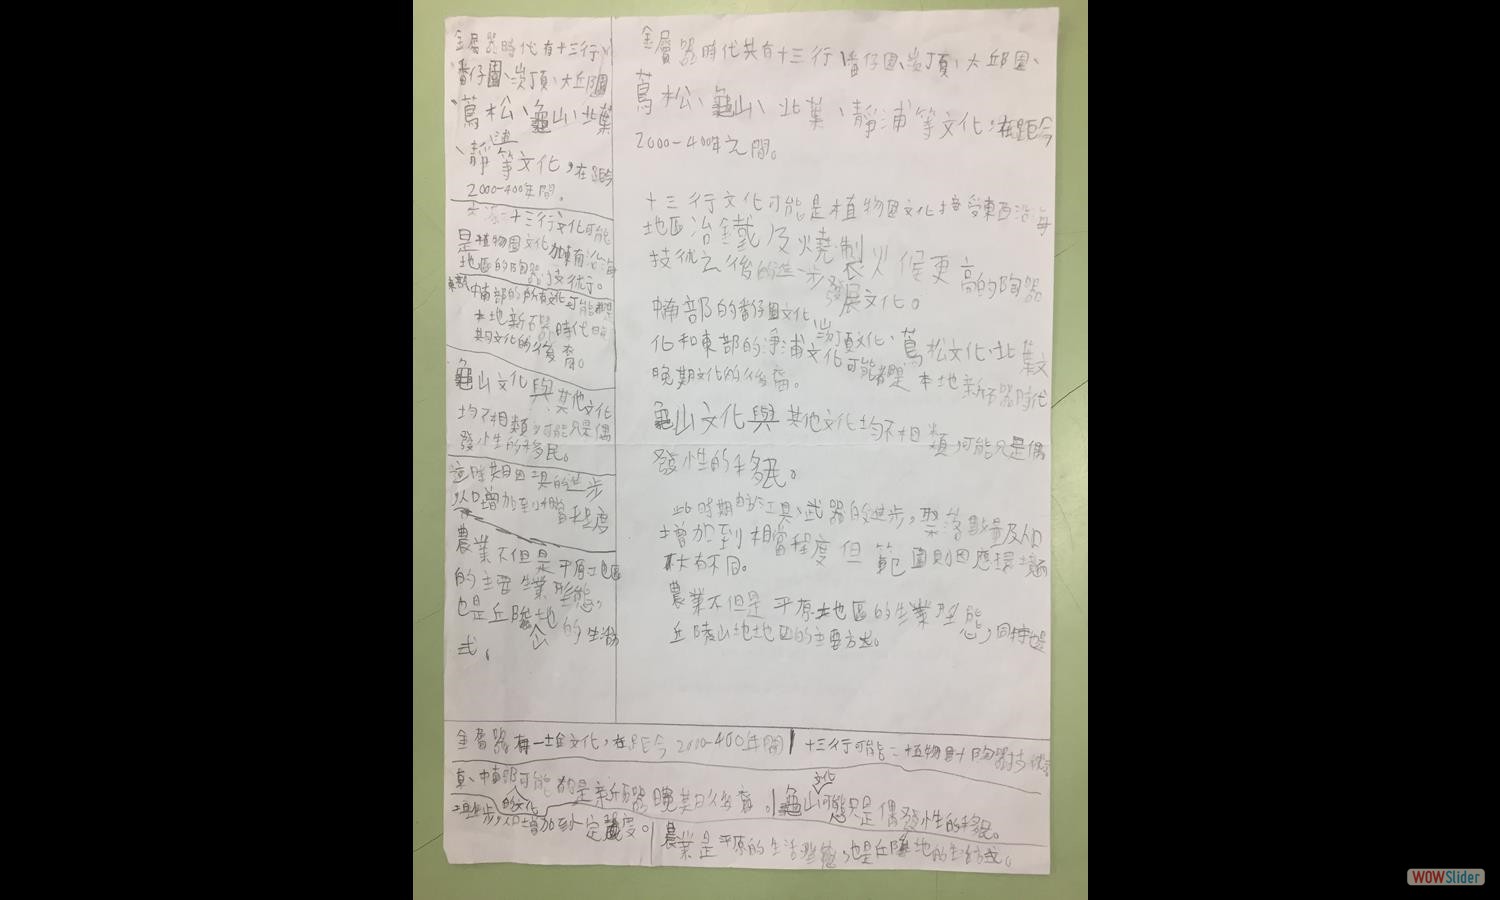 金屬器時代有十三行、
番仔園、崁頂、大丘園
、蔦松、龜山、北葉
、靜浦等文化,在距今
2000-400年間。
十三行文化可能
是植物園文化加東南沿海
地區的陶器技術。
東部、中南部的所有文化可能都是
本地新石器時代晚
期文化的後裔。
龜山文化與其他文化
均不相類,可能只是偶
發性的移民。
這時期因工具的進步
,人口增加到相當程度
農業不但是平原地區
的主要生業形態,
也是丘陵山地的生活方
式。
金屬器時代共有十三行、番仔園、崁頂、大邱園、
蔦松、龜山、北葉、靜浦等文化,在距今
2000-400年之間。
十三行文化可能是植物園文化接受東西沿海
地區冶鐵及燒製火候更高的陶器
技術之後的進一步發展文化。
中南部的番仔園文化、崁頂文化、蔦松文化、北葉文
化和東部的淨浦文化可能都是本地新石器時代
晚期文化的後裔。
龜山文化與其他文化均不相類,可能只是偶
發性的移民。
此時期由於工具、武器的進步,聚落數量及人口
增加到相當程度但範圍則因應環境
大有不同。
農業不但是平原地區的生業型態,同時也是
丘陵山地地區的主要方式。
金屬器有一些文化,在距今2000-400年間
十三行可能=植物園+陶器技術
東、中南部可能的文化都是新石器晚期後裔。
龜山文化可能只是偶發性的移民。
工具進步,人口增加到一定程度。
農業是平原的生活型態,也是丘陵地的生活方式。
WOWSlider